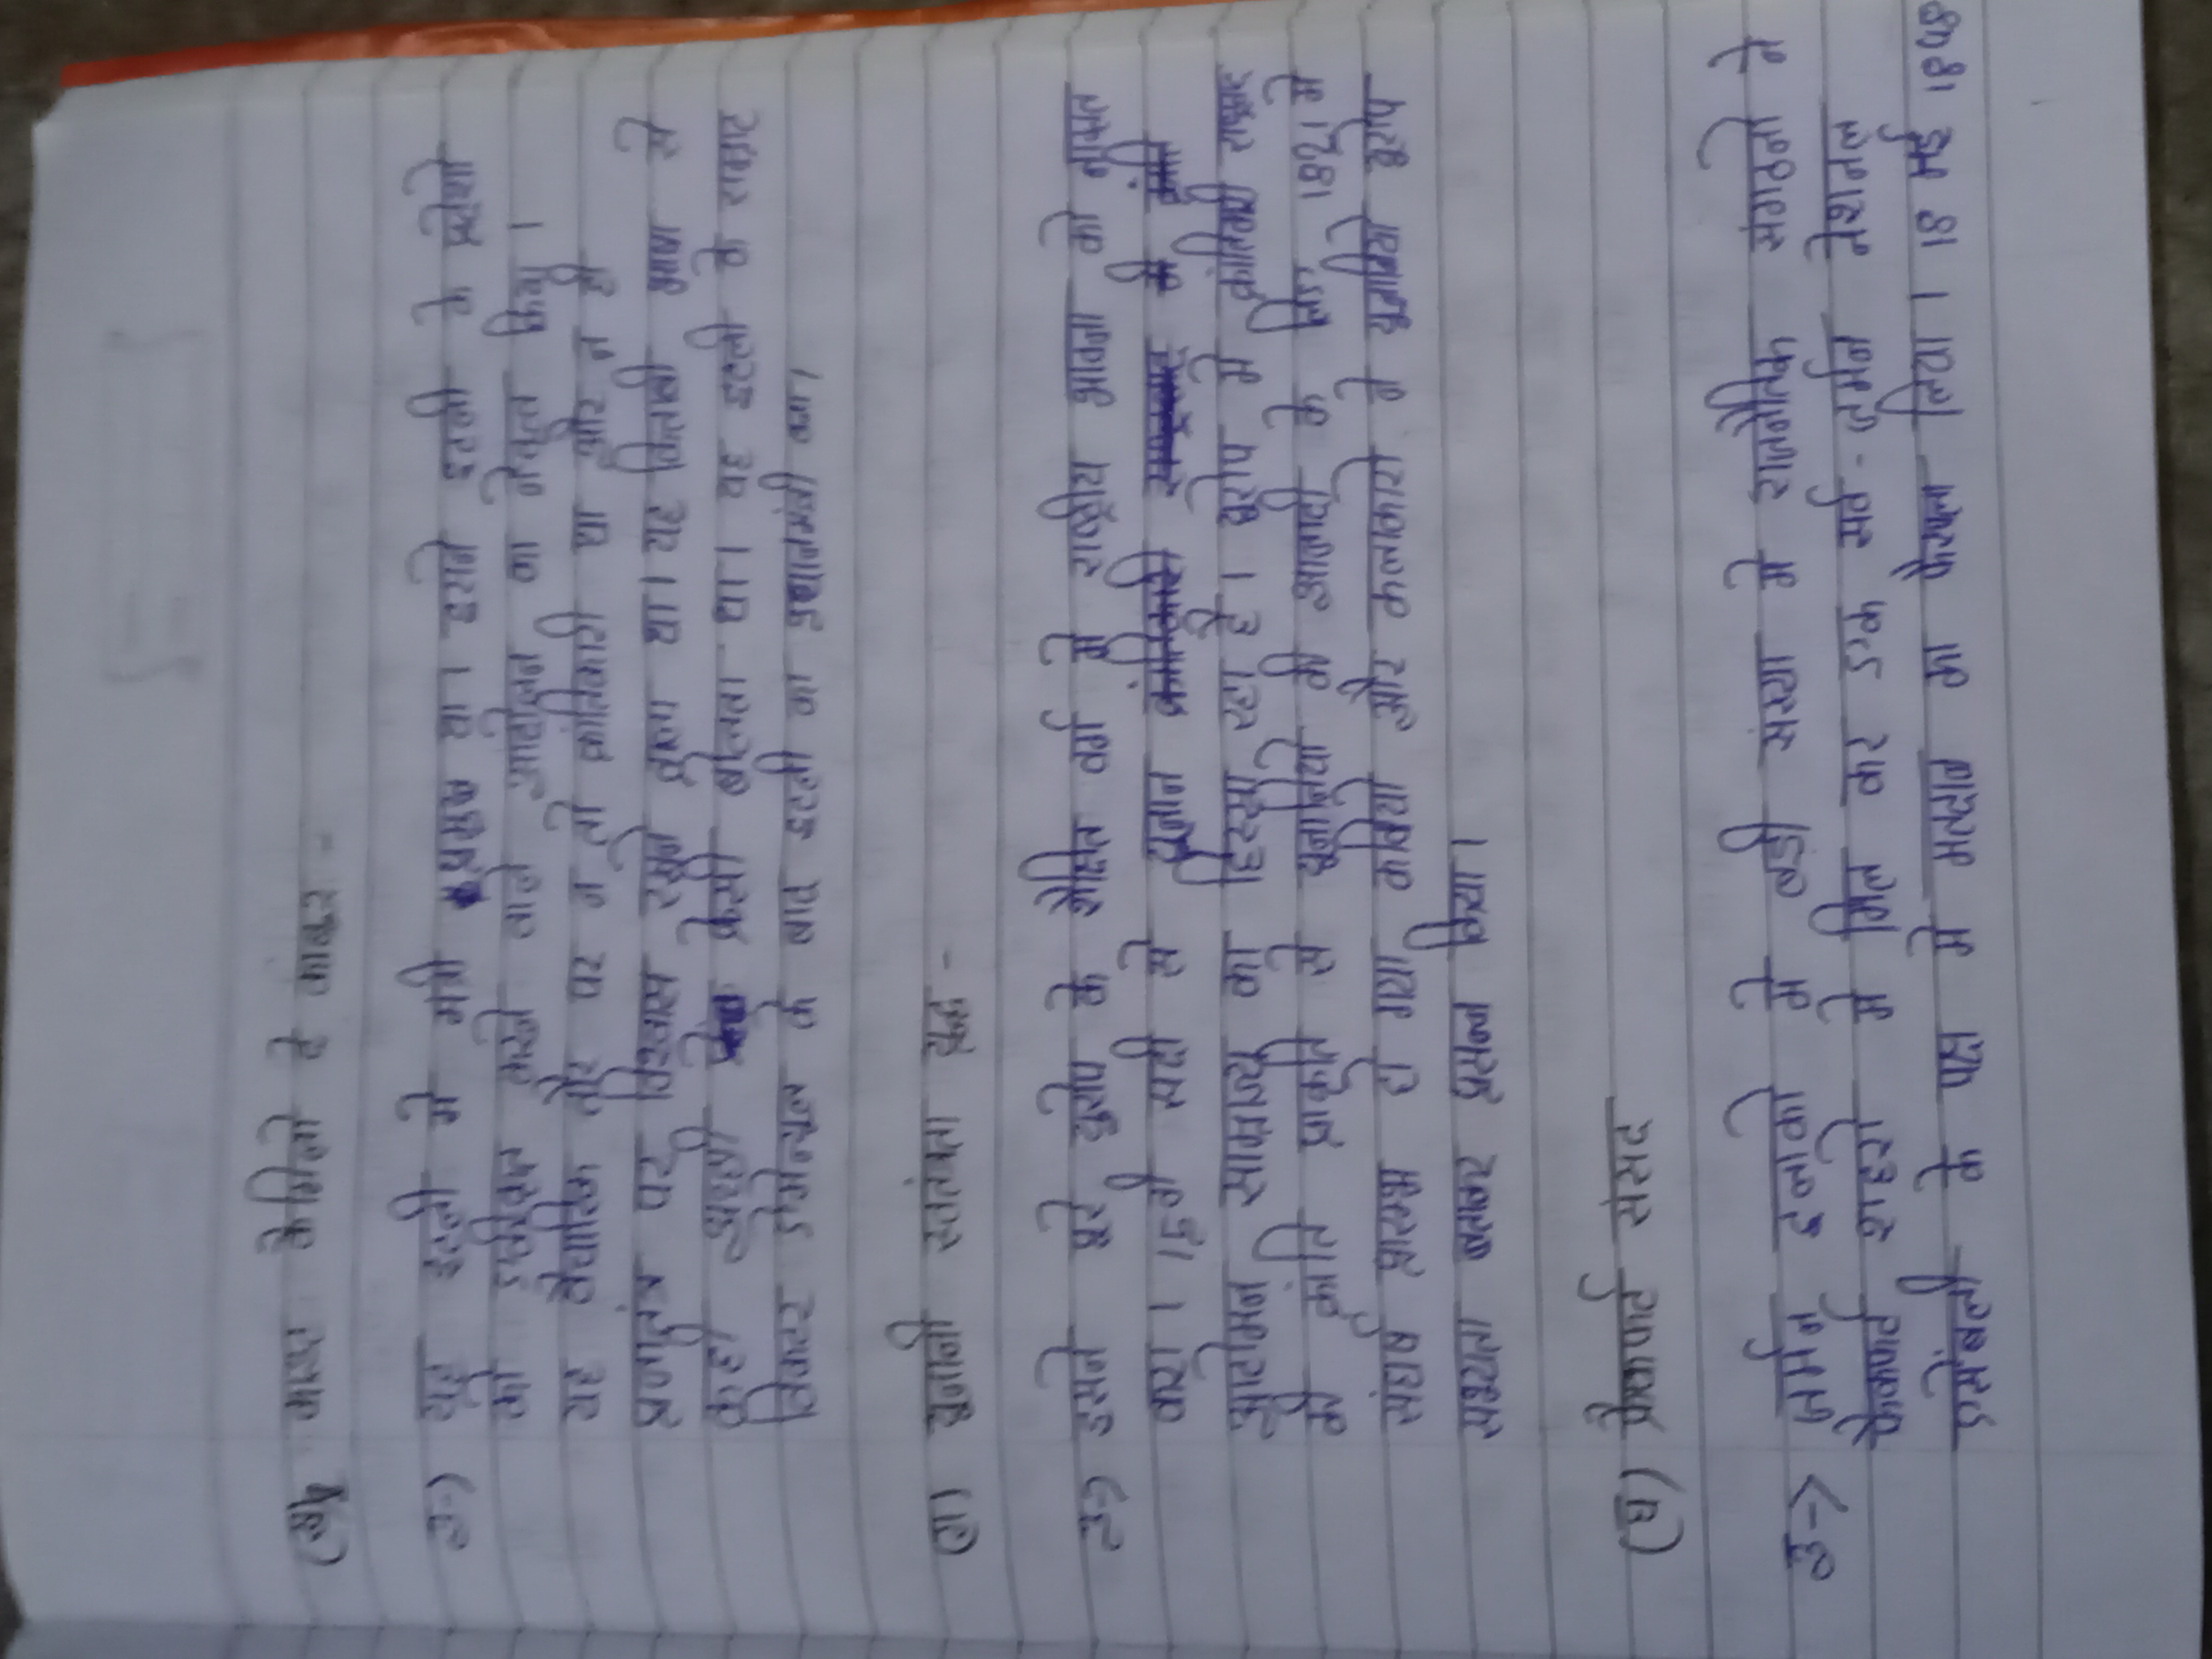 (ख) काउंट कैमिलो दे काबूर -
उ-> यह इटली में मंत्री प्रमुख था। इसने इटली के प्रदेशो
को एकीकृत करने वाले आंदोलन का नेतृत्त किया।
यह वैचारिक तौर पर न तो क्रांतिकारी था और न ही
प्रजातंत्र पर विश्वास रखने वाला था। यह किताबी भाषा से
कही अच्छी फ्रेंसी बोलता था। यह इटली के सम्राट
विक्टर ईमेन्युल के बाद इटली का प्रधानमंत्री बना।
(ग) यूनानी स्ततंत्रता युद्ध -
उ-> इसने पूरे यूरोप के शैक्षित वर्ग में राष्ट्रीय भावना को
करा। 15वी सदी से यूनान
आटोमन साम्राज्य का हिस्सा रहा है। यूरोप मे क्रांतिकारी राष्ट्रवाद
की क्रांति प्राकृति से यूनानियो की आजादी के लिए 1821 मे
संघर्ष प्रारम्भ हो गया कवियो और कलाकारो ने यूनानियो यूरोप
सभ्यता बताकर प्रसन्न किया।
(घ) फ्रैंकफर्ट संसद
उ-> जर्मन इलाको मे बड़ी संख्या मे राजनैतिक संगठनो ने
फैंकफर्ट शहरो मे मिल कर एक सर्व-जर्मन नेशनल
एसेंबली के पक्ष मे मतदान का फैसला लिया। 18 मई 1848